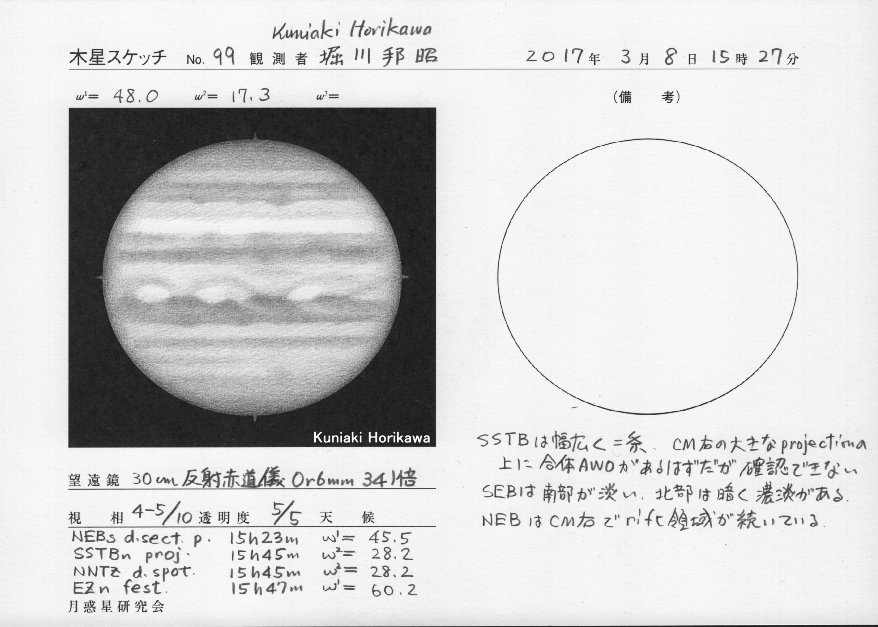 Kuniaki Horikawa
木星スケッチ No. 99 観測者 堀川邦昭 2017年 3月 8日 15時 27分
ω¹= 48.0 ω²= 17.3 ω³=
(備 考)
Kuniaki Horikawa
SSTBは幅広く二条、CM右の大きなprojectionの
上に合体AWOがあるはずだが確認できない
SEBは南部が淡い、北部は暗く濃淡がある.
NEBはCM右でrift領域が続いている.
望遠鏡 30cm反射赤道儀 Or6mm 341倍
視 相 4-5/10 透明度 5/5 天 候
NEBs d.sect p. 15h23m ω¹= 45.5
SSTBn proj. 15h45m ω²= 28.2
NNTZ d.spot. 15h45m ω²= 28.2
EZn fest. 15h47m ω¹= 60.2
月惑星研究会